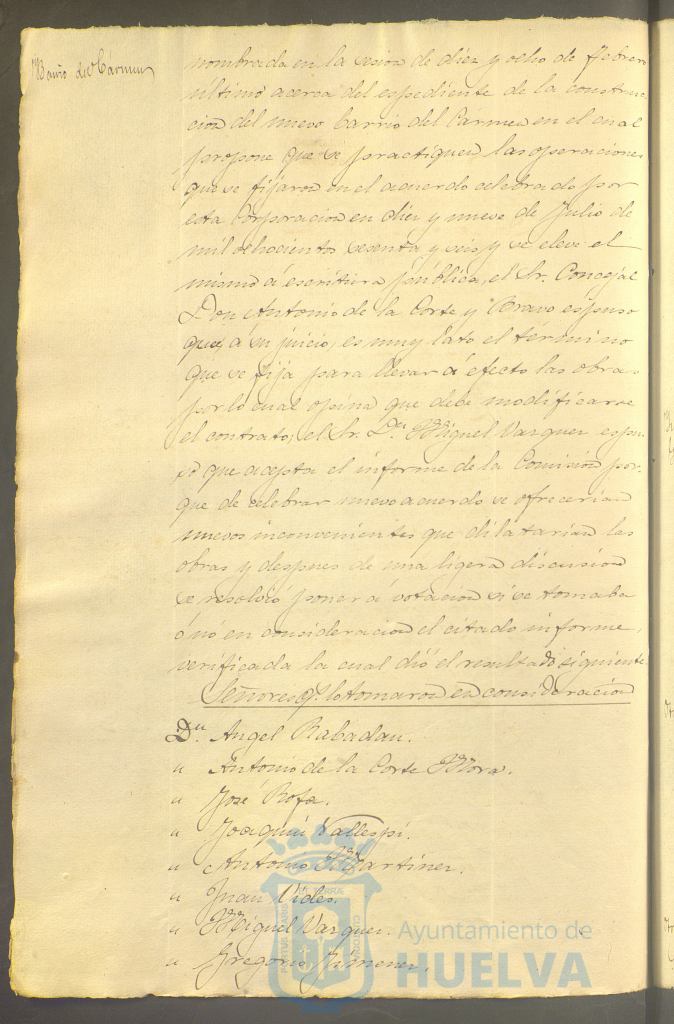 Barrio del Carmen
nombrada en la sesion de diez y ocho de Febrero
último acerca del espediente de la construc-
cion del nuevo barrio del Carmen en el cual
propone que se practiquen las operaciones
que se fijaron en el acuerdo celebrado por
esta Corporacion en diez y nueve de Julio de
mil ochocientos sesenta y seis y se eleve el
mismo á escritura pública, el Sr. Concejal
Don Antonio de la Corte y Bravo espuso
que, á su juicio, es muy lato el término
que se fija para llevar á efecto las obras
por lo cual opina que debe modificarse
el contrato; el Sr. Dn. Miguel Vazquez espu-
so que acepta el informe de la Comision por-
que de celebrar nuevo acuerdo se ofrecerian
nuevos inconvenientes que dilatarian las
obras y despues de una ligera discusion
se resolvió poner á votacion si se tomaba
ó nó en consideracion el citado informe,
verificada la cual dió el resultado siguiente
Señores q. lo tomaron en consideracion
Dn. Angel Rabadan.
" Antonio de la Corte Mora.
" José Rofa.
" Joaquin Vallespi.
" Antonio Martinez.
" Juan Vides.
" Miguel Vazquez.
" Gregorio Jimenez.
Ayuntamiento de
HUELVA